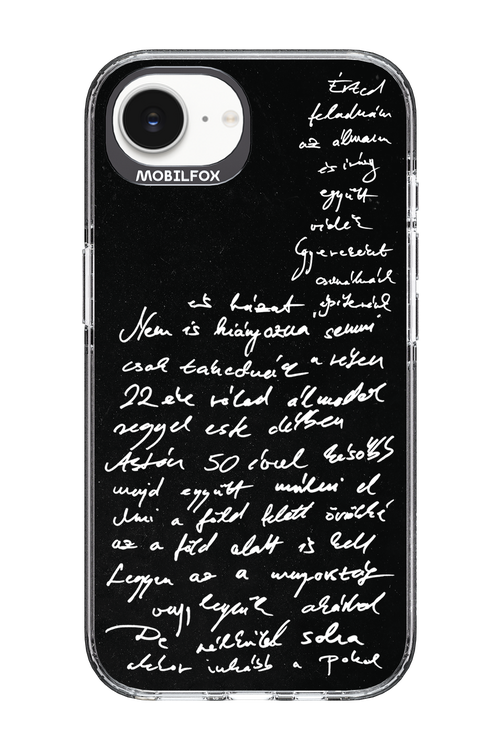 MOBILFOX
Érted
feladnám
az álmaim
és így
együtt
vidék
Gyerekeket
csinálnánk
és házat építenénk
Nem is hiányozna semmi
csak takednánk a réten
22 éve rólad álmodok
reggel este délben
Aztán 50 évvel később
majd együtt múlni el
Ami a föld felett örökké
az a föld alatt is kell
Legyen az a mennyország
vagy legyünk akárhol
De nélküled soha
akkor inkább a pokol